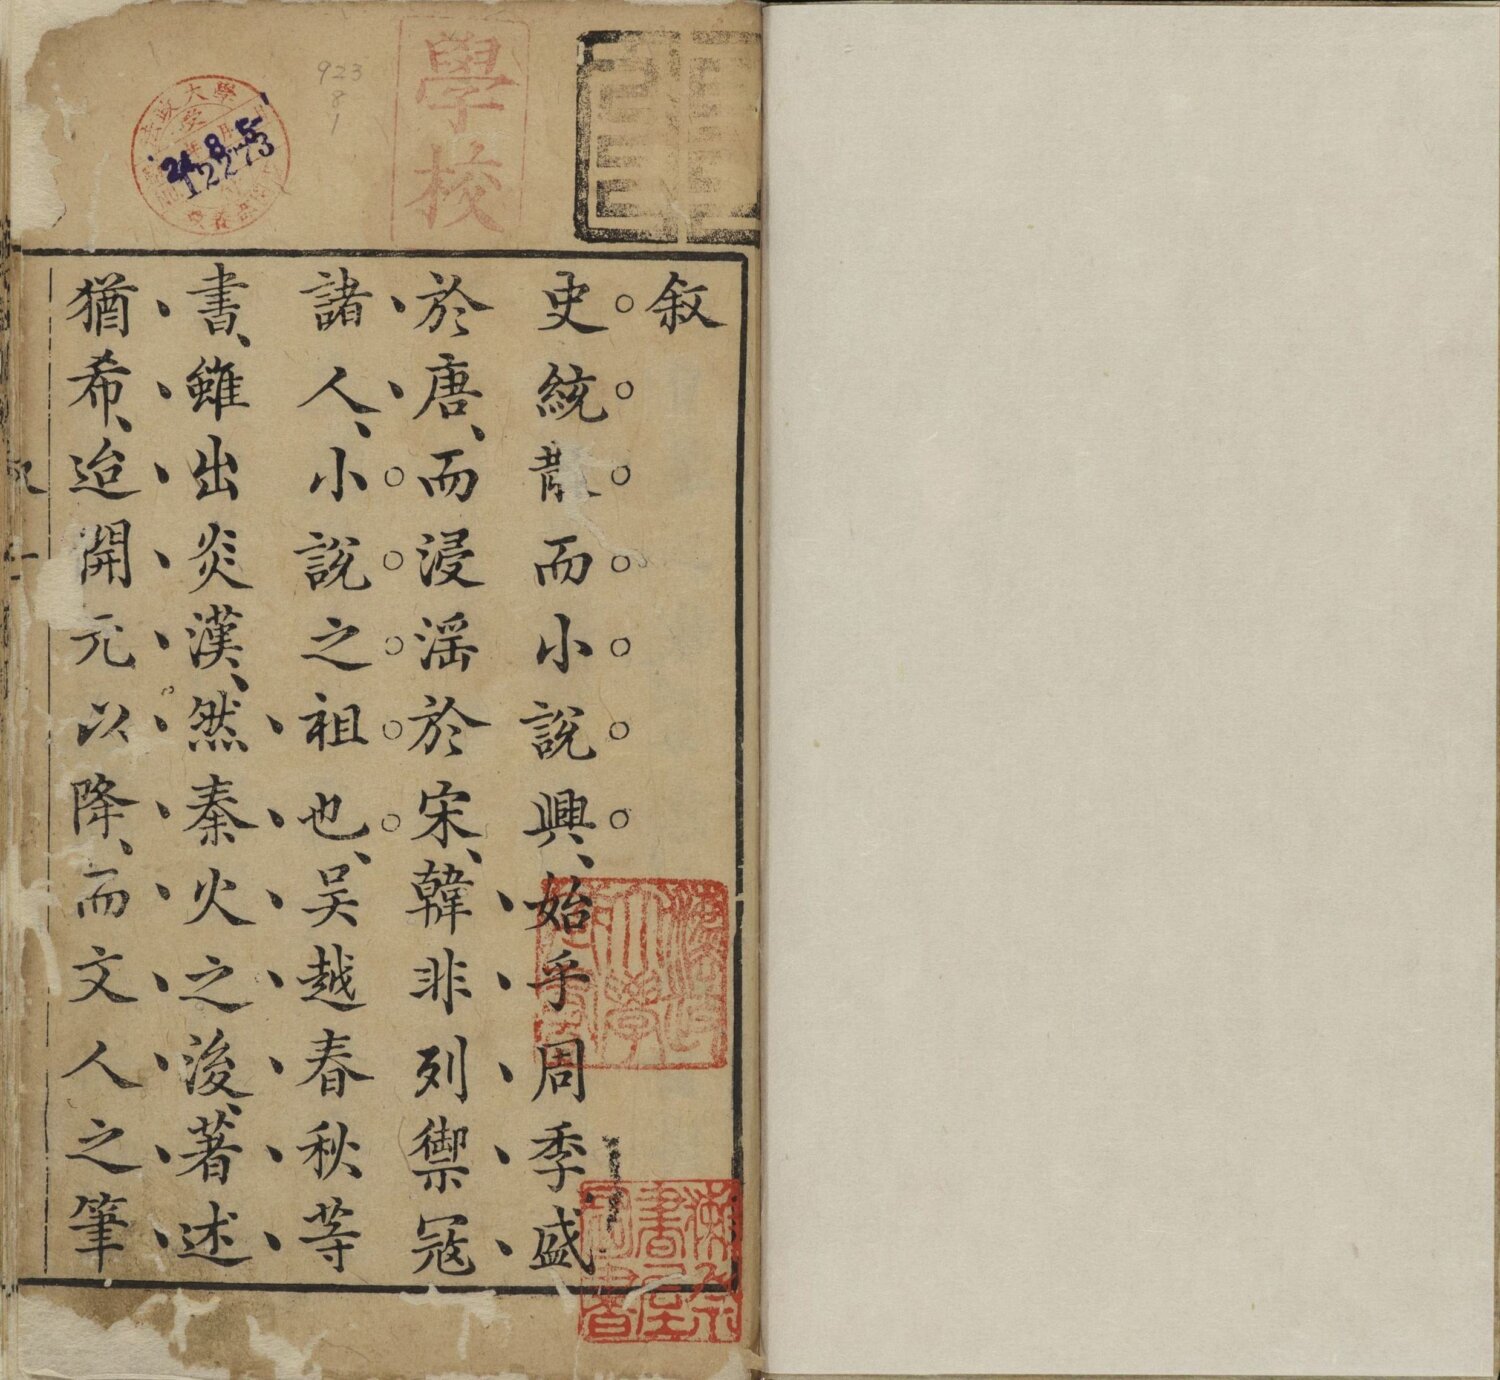 叙
史統散而小說興、始乎周季盛
於唐、而浸滛於宋、韓非列禦寇
諸人、小說之祖也、吴越春秋等
書、雖出炎漢、然秦火之後、著述
猶希、迨開元以降、而文人之筆
學校
法政大學
24.8.5
12273
923
8
1
法政大學